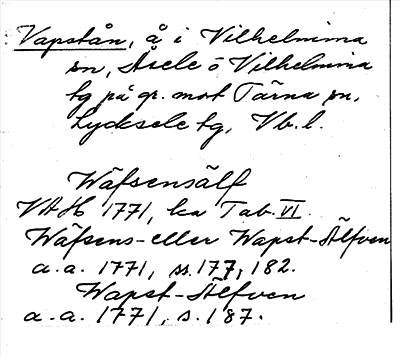 Vapstån, å i Vilhelmina
sn, Åsele o Vilhelmina
tg på gr. mot Tärna sn,
Lycksele tg, Vb.l.
Wäfsensälf
VAH 1771, ka Tab. VI.
Wäfsens- eller Wapst-Älfven
a.a. 1771, ss. 177, 182.
Wapst-Älfven
a.a. 1771, s. 187.